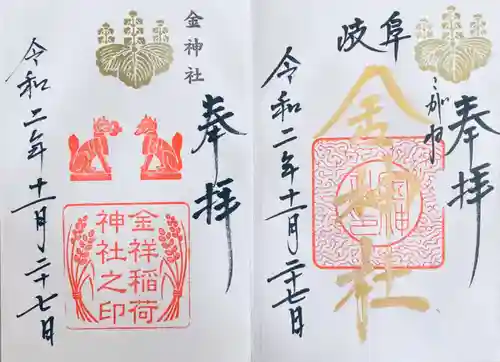 奉拝
岐阜
こがね
金神社
令和二年十一月二十七日
金神社
奉拝
金祥稲荷
神社之印
令和二年十一月二十七日